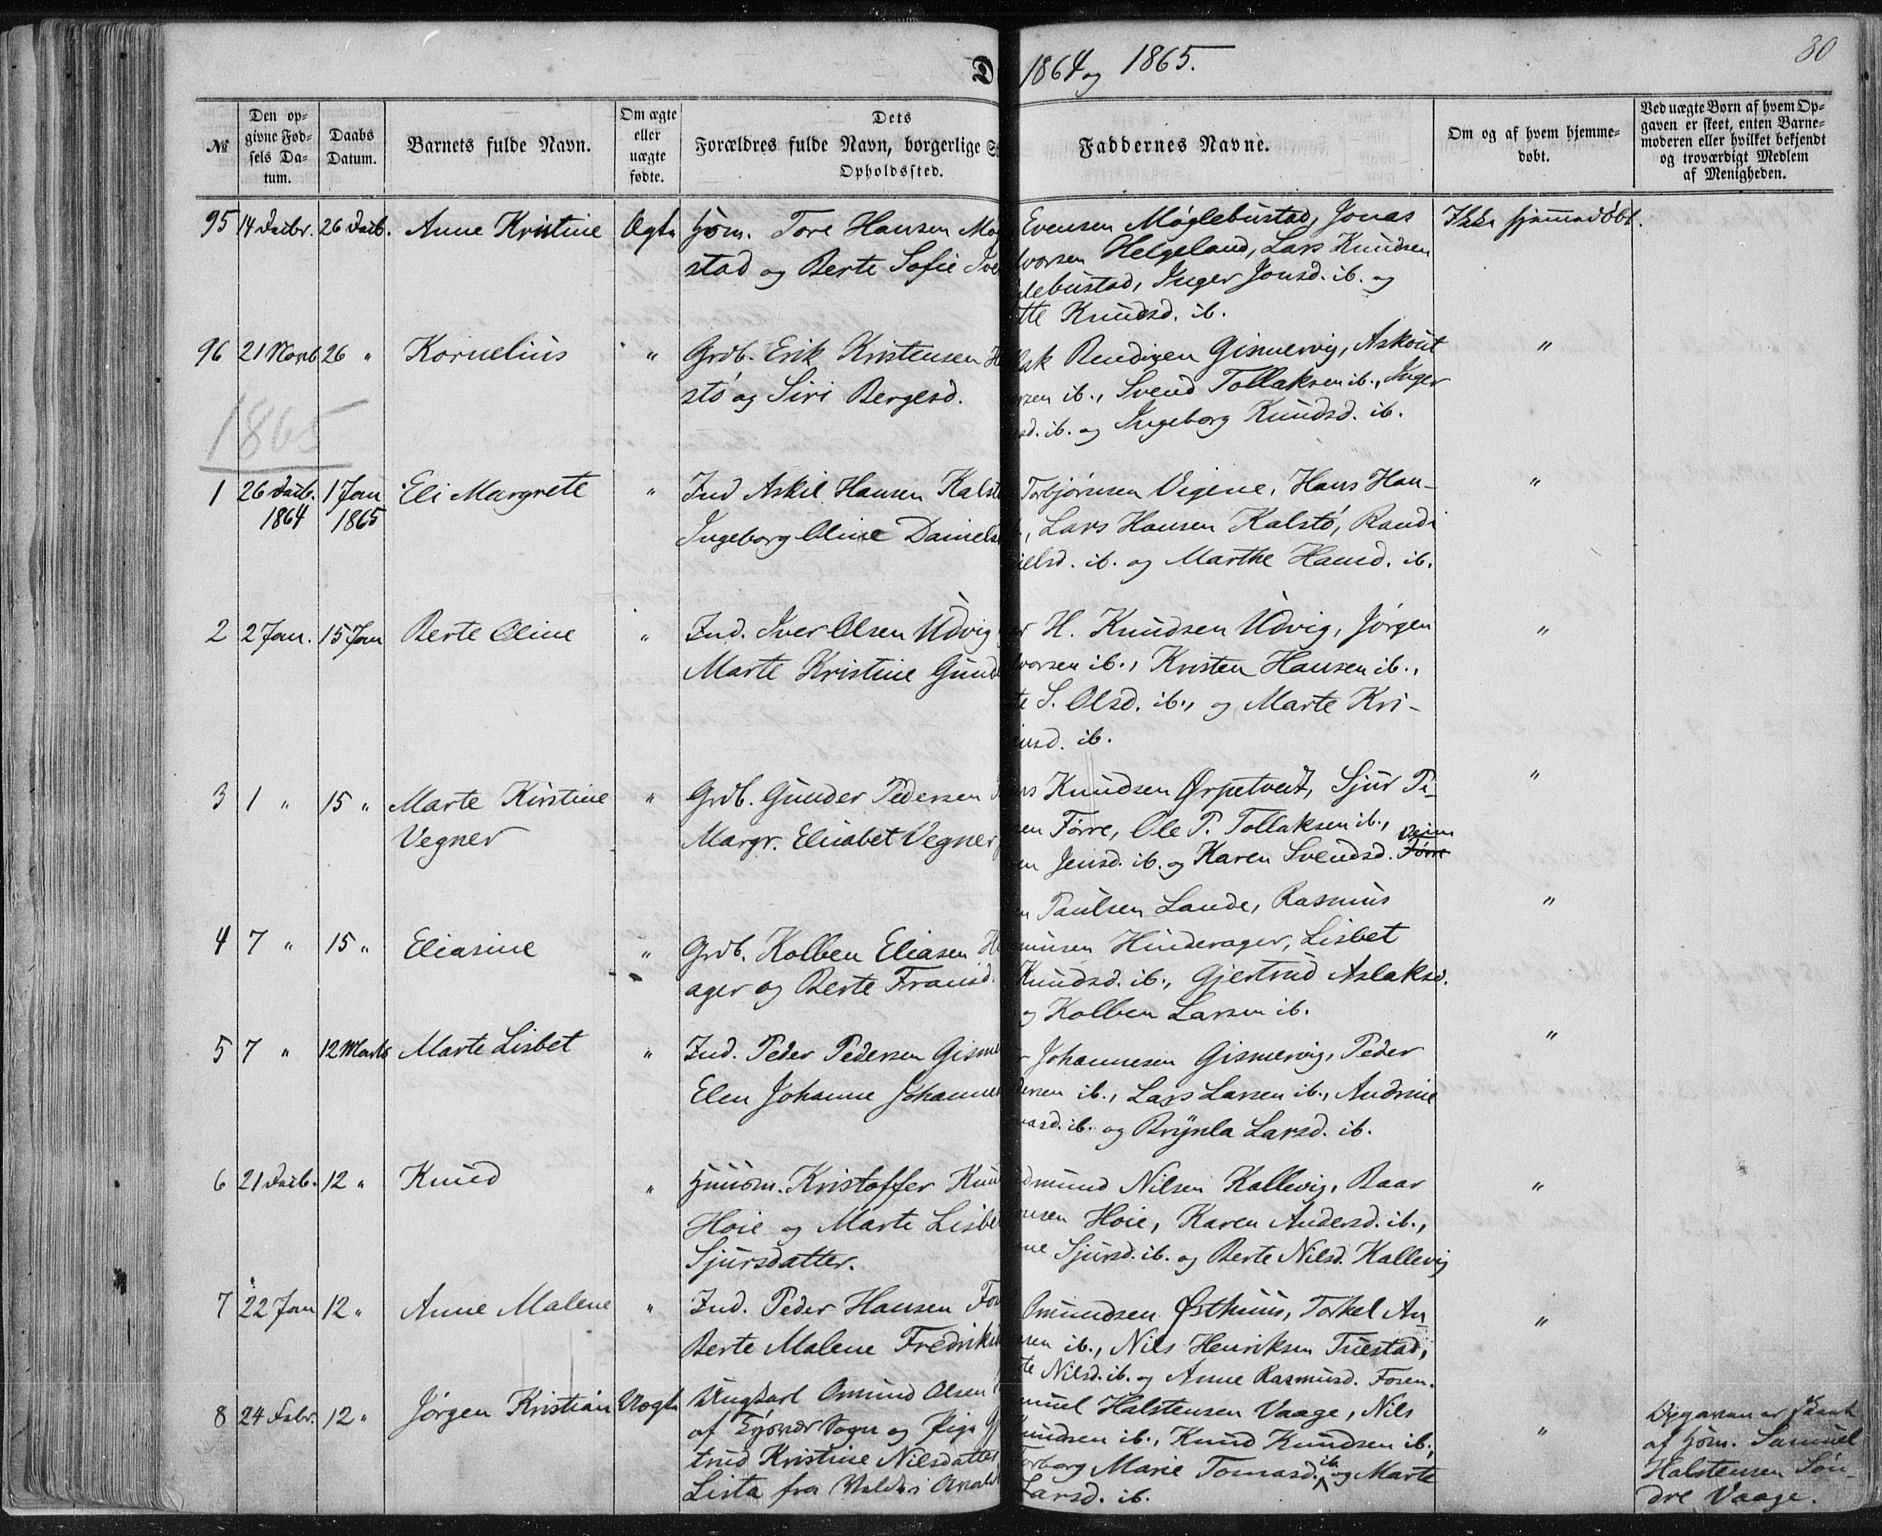 1864 og 1865.
80
№
Den op-
givne Fød-
sels Da-
tum.
Daabs
Datum.
Barnets fulde Navn.
Om ægte
eller
uægte
fødte.
Dets
Forældres fulde Navn, borgerlige S
Opholdssted.
Faddernes Navne.
Om og af hvem hjemme-
døbt.
Ved uægte Børn af hvem Op-
gaven er skeet, enten Barne-
moderen eller hvilket bekjendt
og troværdigt Medlem
af Menigheden.
95 14 Decbr. 26 Decb. Anne Kristine Ægte Hjøm. Tore Hansen Møg
stad og Berte Sofie Ive
Evensen Møglebustad, Jonas
lvorsen Helgeland, Lars Knudsen
glebustad, Inger Jonsd. ib. og
tte Knudsd. ib.
Ikke hjemmedøbt.
96 21 Novb 26 " Kornelius " Grdb. Erik Kristensen H
stø og Siri Bergesd.
lak Gismervig, Askout
rsen ib., Svend Tollaksen ib., Inger
sd. ib. og Ingeborg Knudsd. ib.
"
1865
1 26 Decb. 1 Jan Eli Margrete " Ind Askil Hansen Kalst
1864 1865 Ingeborg Oline Daniels
Torbjørnsen Vigene, Hans Han-
, Lars Hansen Kalstø, Randi
ielsd. ib. og Marthe Hansd. ib.
"
2 2 Jan. 15 Jan Berte Oline " Ind. Iver Olsen Udvig
Marte Kristine Gund
er H. Knudsen Udvig, Jørgen
lvorsen ib., Kristen Hansen ib.,
te S. Olsd. ib., og Marte Kri-
insd. ib.
"
3 1 " 15 " Marte Kirstine " Grdb. Gunder Pedersen
Vegner Margr. Elisabet Vegner
rs Knudsen Ørpetveit, Sjur Pe-
sen Førre, Ole P. Tollaksen ib.,
en Jensd. ib. og Karen Svendsd. Førre
"
4 7 " 15 " Eliasine " Grdb. Kolben Eliasen H
ager og Berte Fransd.
en Paulsen Lande, Rasmus
smusen Hinderager, Lisbet
Knudsd. ib., Gjertrud Aslaksd.
g Kolben Larsen ib.
"
5 7 " 12 Marts Marte Lisbet " Ind. Peder Pedersen Gisme
Elen Johanne Johannes
r Johannesen Gismervig, Peder
dersen ib., Lars Larsen ib., Andrine
rasd. ib. og Brynla Larsd. ib.
"
6 21 Decb. 12 " Knud " Huusm. Kristoffer Knu
Hoie og Marte Lisbe
Sjursdatter.
dmund Nilsen Kallevig, Baar
nsen Hoie, Karen Andersd. ib.,
ne Sjursd. ib. og Berte Nilsd. Kallevig
"
7 22 Jan 12 " Anne Malene " Ind. Peder Hansen Fos
Berte Malene Fredriks
Omundsen Østhuus, Torkel An-
sen ib., Nils Henriksen Tuestad,
te Nilsd. ib. og Anne Rasmusd. Fosen.
"
8 24 Febr. 12 " Jørgen Kristian Uægte Ungkarl Omund Olsen
af Sogn og Pige G
trud Kristine Nilsdatter
Lista fra
muel Halstensen Vaage, Nils
mundsen ib., Knud Knudsen ib.,
Torborg Marie Tomasd. ib. og Marte
Larsd. ib.
"
Opgaven er skeet
af Hjøm. Samuel
Halstensen Søn-
dre Vaage.